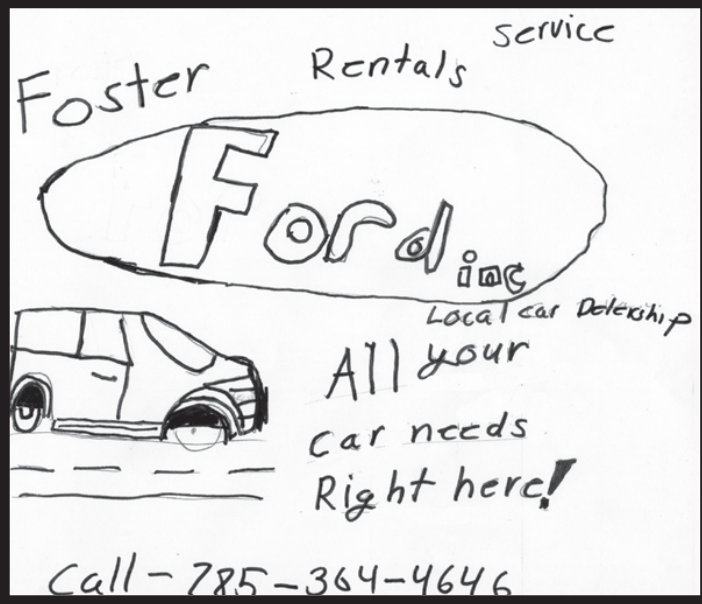 service
Foster Rentals
Ford inc
Local car Delership
All your
car needs
Right here!
Call - 785-364-4646